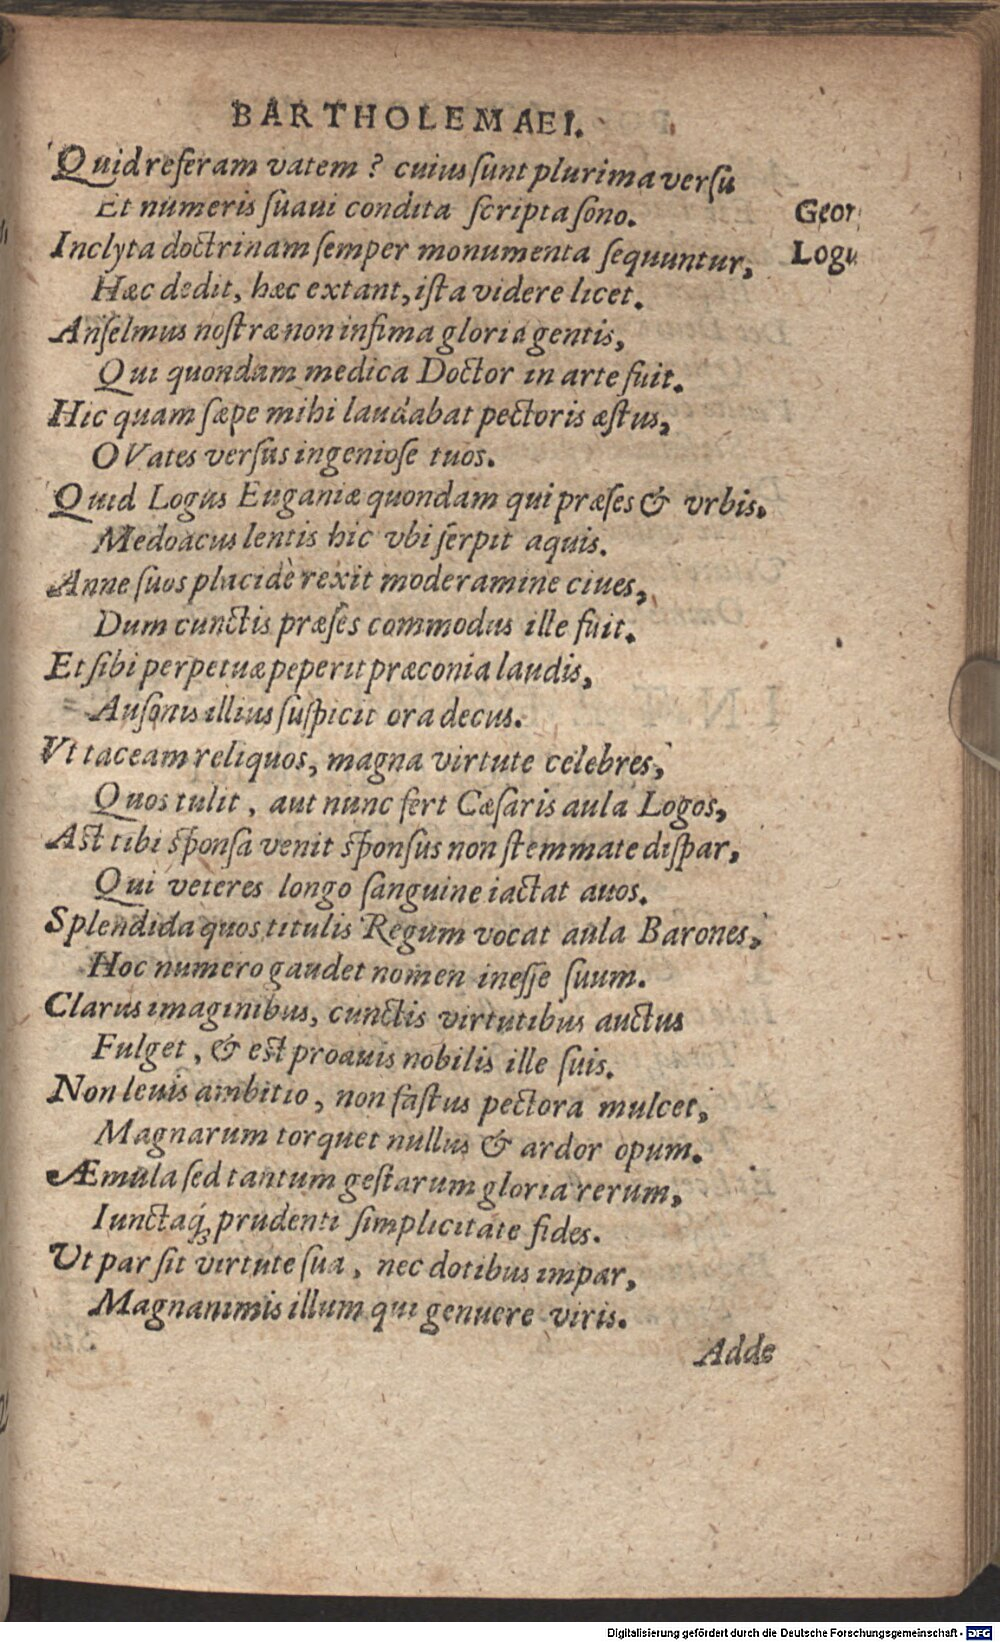 BARTHOLEMAEI.
Quid referam vatem? cuius ſunt plurima verſu
Et numeris ſuaui condita ſcripta ſono.
Geor
Inclyta doctrinam ſemper monumenta ſequuntur,
Logu
Hæc dedit, hæc extant, iſta videre licet.
Anſelmus noſtræ non infima gloria gentis,
Qui quondam medica Doctor in arte fuit.
Hic quam ſæpe mihi laudabat pectoris æſtus,
O Vates verſus ingenioſe tuos.
Quid Logus Euganiæ quondam qui præſes & vrbis.
Medoacus lentis hic vbi ſerpit aquis.
Anne ſuos placidè rexit moderamine ciues,
Dum cunctis præſes commodus ille fuit.
Et ſibi perpetuæ peperit præconia laudis,
Auſonis illius ſuſpicit ora decus.
Vt taceam reliquos, magna virtute celebres,
Quos tulit, aut nunc fert Cæſaris aula Logos,
Aſt tibi ſponſa venit ſponſus non ſtemmate diſpar,
Qui veteres longo ſanguine iactat auos.
Splendida quos titulis Regum vocat aula Barones,
Hoc numero gaudet nomen ineſſe ſuum.
Clarus imaginibus, cunctis virtutibus auctus
Fulget, & eſt proauis nobilis ille ſuis.
Non leuis ambitio, non faſtus pectora mulcet,
Magnarum torquet nullus & ardor opum.
Æmula ſed tantum geſtarum gloria rerum,
Iunctaq́; prudenti ſimplicitate fides.
Ut par ſit virtute ſua, nec dotibus impar,
Magnanimis illum qui genuere viris.
Adde
Digitalisierung gefördert durch die Deutsche Forschungsgemeinschaft - DFG